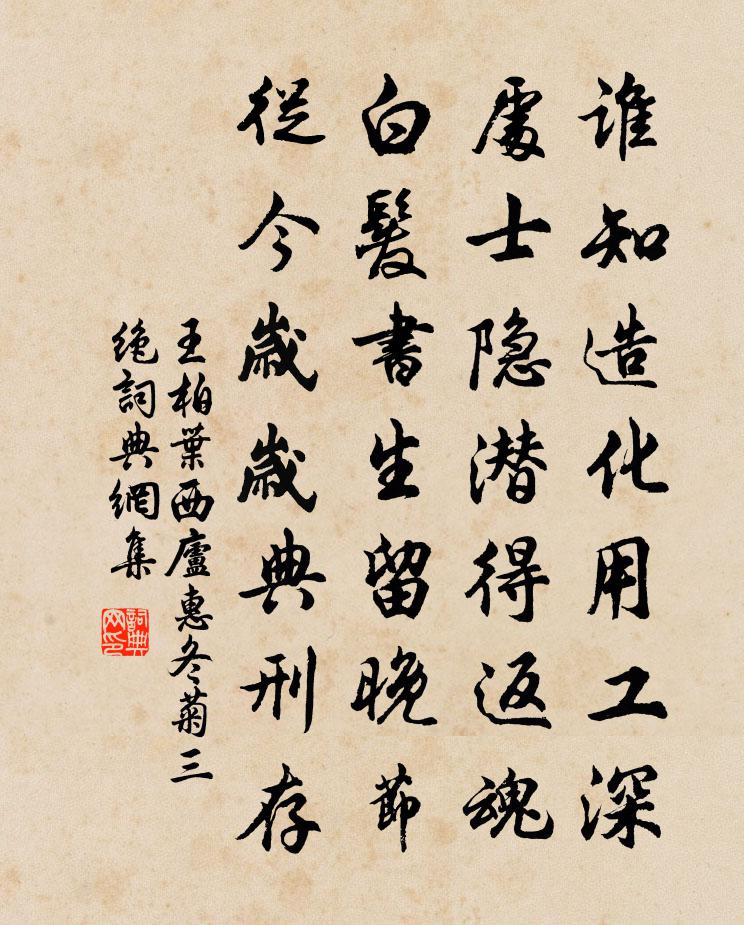 谁知造化用工深
處士隐潜得返魂
白髮書生留晚節
從今歲歲典刑存
王柏葉西廬惠冬菊三
绝詞典網集
詞典
网印